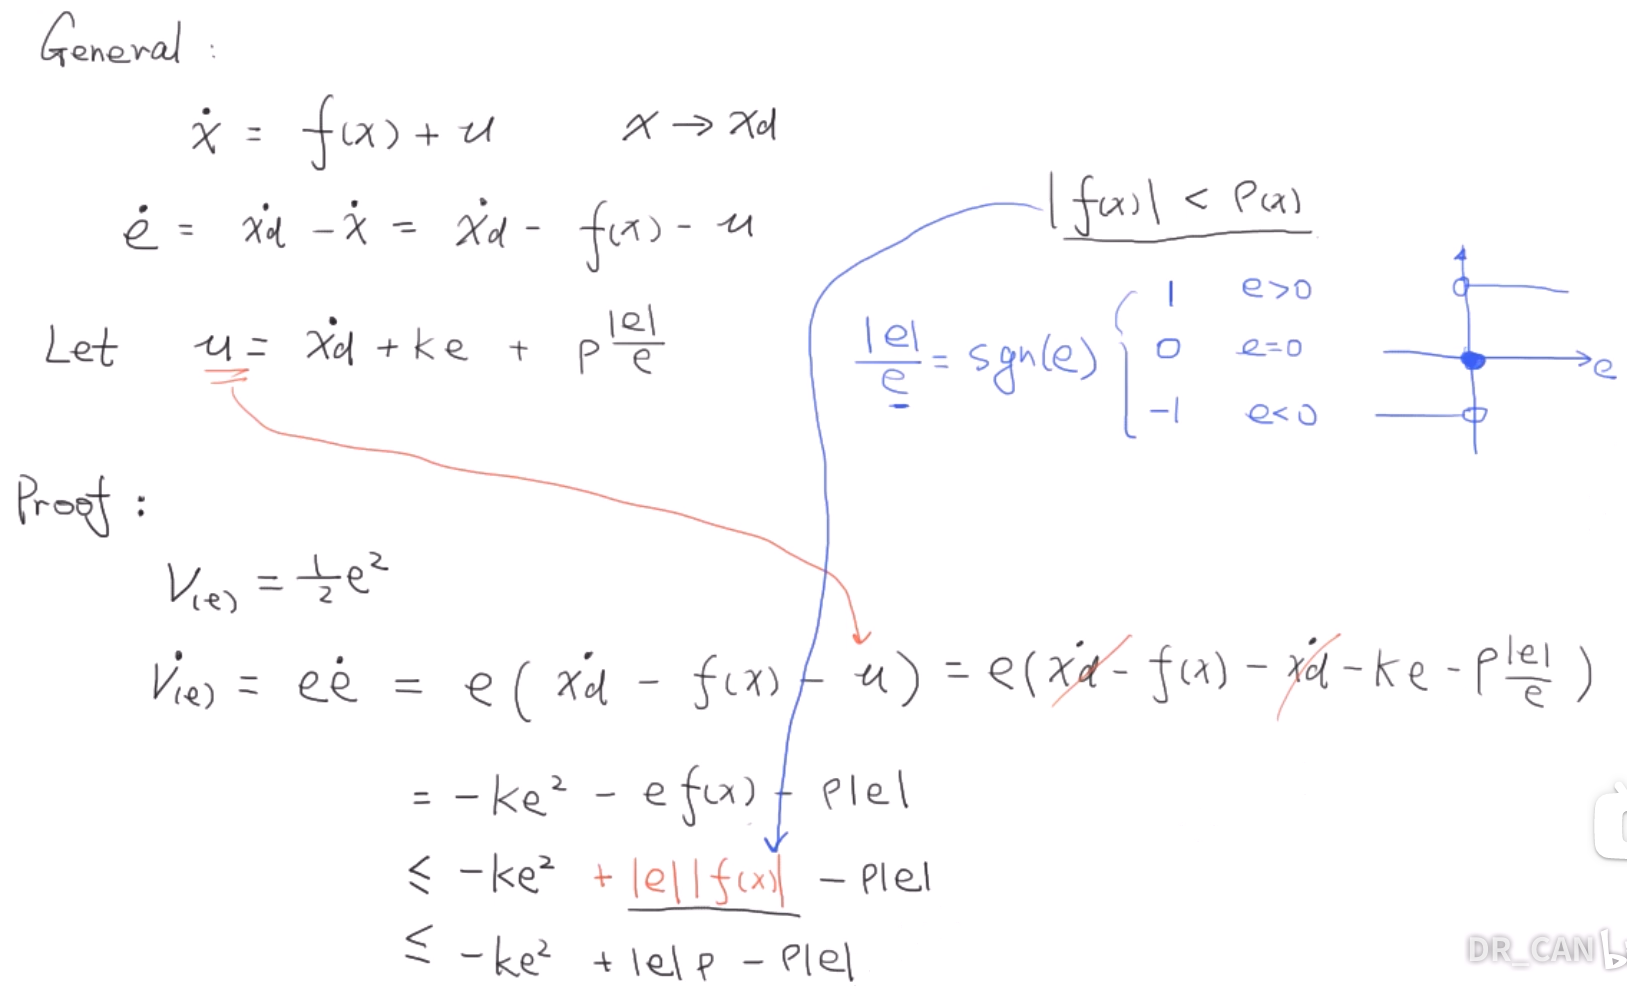 General :
ẋ = f(x) + u    x → xd
ė = ẋd - ẋ = ẋd - f(x) - u
|f(x)| < ρ(x)
Let u = ẋd + ke + ρ|e|/e
|e|/e = sgn(e) { 1 e>0
0 e=0
-1 e<0
e
Proof :
V(e) = 1/2 e²
V̇(e) = eė = e( ẋd - f(x) - u ) = e(ẋd - f(x) - ẋd - ke - ρ|e|/e )
= -ke² - e f(x) - ρ|e|
≤ -ke² + |e||f(x)| - ρ|e|
≤ -ke² + |e|ρ - ρ|e|
DR_CAN